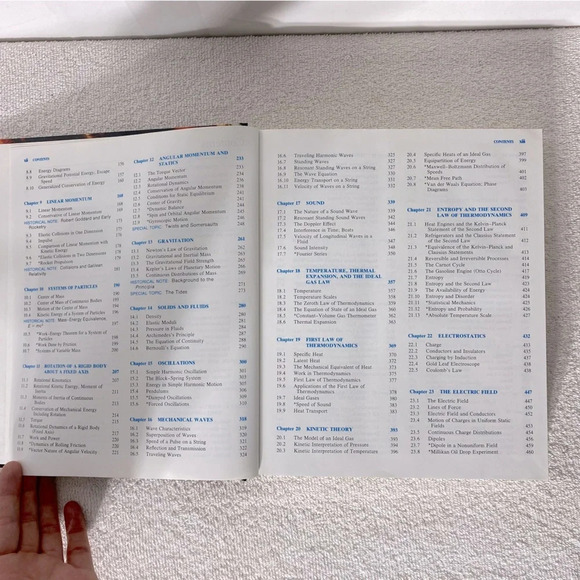 xii CONTENTS
8.8 Energy Diagrams 159
8.9 Gravitational Potential Energy, Escape
Speed
8.10 Generalized Conservation of Energy
Chapter 9 LINEAR MOMENTUM
9.1 Linear Momentum
9.2 Conservation of Linear Momentum
HISTORICAL NOTE: Robert Goddard and Early
Rocketry
9.3 Elastic Collisions in One Dimension
9.4 Impulse
9.5 Comparison of Linear Momentum with
Kinetic Energy
9.6 *Elastic Collisions in Two Dimensions
9.7 *Rocket Propulsion
HISTORICAL NOTE: Collisions and Galilean
Relativity
Chapter 10 SYSTEMS OF PARTICLES 190
10.1 Center of Mass
10.2 Center of Mass of Continuous Bodies
10.3 Motion of the Center of Mass
10.4 Kinetic Energy of a System of Particles
HISTORICAL NOTE: Mass Energy Equivalence
E = mc²
10.5 *Work–Energy Theorem for a System of
Particles
10.6 *Work Done by Friction
10.7 *Systems of Variable Mass
Chapter 11 ROTATION OF A RIGID BODY
ABOUT A FIXED AXIS 207
11.1 Rotational Kinematics
11.2 Rotational Kinetic Energy, Moment of
Inertia
11.3 Moments of Inertia of Continuous
Bodies
11.4 Conservation of Mechanical Energy
Including Rotation
11.5 Torque
11.6 Rotational Dynamics of a Rigid Body
(Fixed Axis)
11.7 Work and Power
11.8 *Dynamics of Rolling Friction
11.9 *Vector Nature of Angular Velocity 221
Chapter 12 ANGULAR MOMENTUM AND
STATICS 231
12.1 The Torque Vector
12.2 Angular Momentum
12.3 Rotational Dynamics
12.4 Conservation of Angular Momentum
12.5 Conditions for Static Equilibrium
12.6 Center of Gravity
12.7 *Dynamic Balance
12.8 *Spin and Orbital Angular Momentum
12.9 *Gyroscopic Motion
SPECIAL TOPIC: Twists and Somersaults
Chapter 13 GRAVITATION 261
13.1 Newton's Law of Gravitation
13.2 Gravitational and Inertial Mass
13.3 The Gravitational Field Strength
13.4 Kepler's Laws of Planetary Motion
13.5 Continuous Distributions of Mass
HISTORICAL NOTE: Background to the
Principia
SPECIAL TOPIC: The Tides
Chapter 14 SOLIDS AND FLUIDS 280
14.1 Density
14.2 Elastic Moduli
14.3 Pressure in Fluids
14.4 Archimedes's Principle
14.5 The Equation of Continuity
14.6 Bernoulli's Equation
Chapter 15 OSCILLATIONS 300
15.1 Simple Harmonic Oscillation
15.2 The Block–Spring System
15.3 Energy in Simple Harmonic Motion
15.4 Pendulums
15.5 *Damped Oscillations
15.6 *Forced Oscillations
Chapter 16 MECHANICAL WAVES 318
16.1 Wave Characteristics 319
16.2 Superposition of Waves 320
16.3 Speed of a Pulse on a String
16.4 Reflection and Transmission
16.5 Traveling Waves 324
CONTENTS xiii
16.6 Traveling Harmonic Waves 325
16.7 Standing Waves 327
16.8 Resonant Standing Waves on a String
16.9 The Wave Equation
16.10 Energy Transport on a String
16.11 Velocity of Waves on a String
Chapter 17 SOUND 339
17.1 The Nature of a Sound Wave
17.2 Resonant Standing Sound Waves
17.3 The Doppler Effect
17.4 Interference in Time; Beats
17.5 Velocity of Longitudinal Waves in a
Fluid
17.6 Sound Intensity
17.7 *Fourier Series
Chapter 18 TEMPERATURE, THERMAL
EXPANSION, AND THE IDEAL
GAS LAW 357
18.1 Temperature
18.2 Temperature Scales
18.3 The Zeroth Law of Thermodynamics
18.4 The Equation of State of an Ideal Gas
18.5 *Constant–Volume Gas Thermometer
18.6 Thermal Expansion 363
Chapter 19 FIRST LAW OF
THERMODYNAMICS 369
19.1 Specific Heat
19.2 Latent Heat
19.3 The Mechanical Equivalent of Heat
19.4 Work in Thermodynamics
19.5 First Law of Thermodynamics
19.6 Applications of the First Law of
Thermodynamics
19.7 Ideal Gases
19.8 *Speed of Sound
19.9 Heat Transport
Chapter 20 KINETIC THEORY 393
20.1 The Model of an Ideal Gas
20.2 Kinetic Interpretation of Pressure
20.3 Kinetic Interpretation of Temperature 396
20.4 Specific Heats of an Ideal Gas 397
20.5 Equipartition of Energy 399
20.6 *Maxwell–Boltzmann Distribution of
Speeds 401
20.7 *Mean Free Path 402
20.8 *Van der Waals Equation; Phase
Diagrams 403
Chapter 21 ENTROPY AND THE SECOND
LAW OF THERMODYNAMICS 409
21.1 Heat Engines and the Kelvin–Planck
Statement of the Second Law 411
21.2 Refrigerators and the Clausius Statement
of the Second Law
21.3 *Equivalence of the Kelvin–Planck
and Clausius Statements
21.4 Reversible and Irreversible Processes
21.5 The Carnot Cycle
21.6 The Gasoline Engine (Otto Cycle)
21.7 Entropy
21.8 Entropy and the Second Law
21.9 The Availability of Energy
21.10 Entropy and Disorder
21.11 *Statistical Mechanics
21.12 *Entropy and Probability
21.13 *Absolute Temperature Scale
Chapter 22 ELECTROSTATICS 432
22.1 Charge
22.2 Conductors and Insulators
22.3 Charging by Induction
22.4 Gold Leaf Electroscope
22.5 Coulomb's Law
Chapter 23 THE ELECTRIC FIELD 447
23.1 The Electric Field
23.2 Lines of Force
23.3 Electric Field and Conductors
23.4 Motion of Charges in Uniform Static
Fields
23.5 Continuous Charge Distributions
23.6 Dipoles
23.7 *Dipole in a Nonuniform Field
23.8 *Millikan Oil Drop Experiment 460